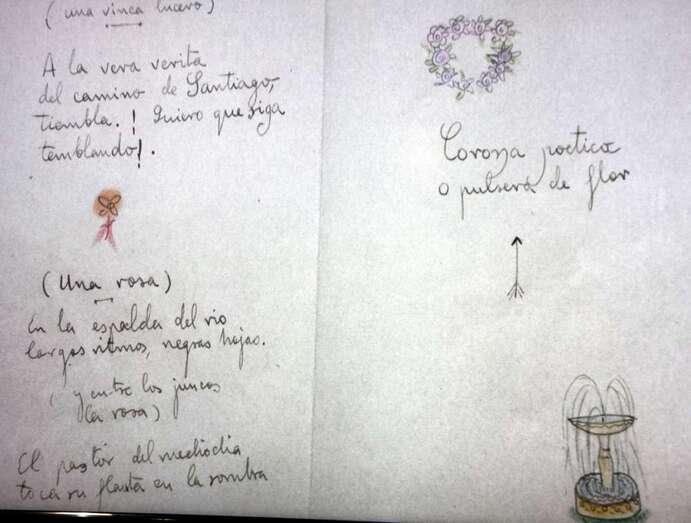 (una vinca lucero)
A la vera verita
del camino de Santiago,
tiembla. ! Quiero que siga
temblando!.
(Una rosa)
En la espalda del rio
largos ritmos, negras hojas.
(y entre los juncos
la rosa)
El pastor del mediodia
toca su flauta en la sombra
Corona poetica
o pulsera de flor